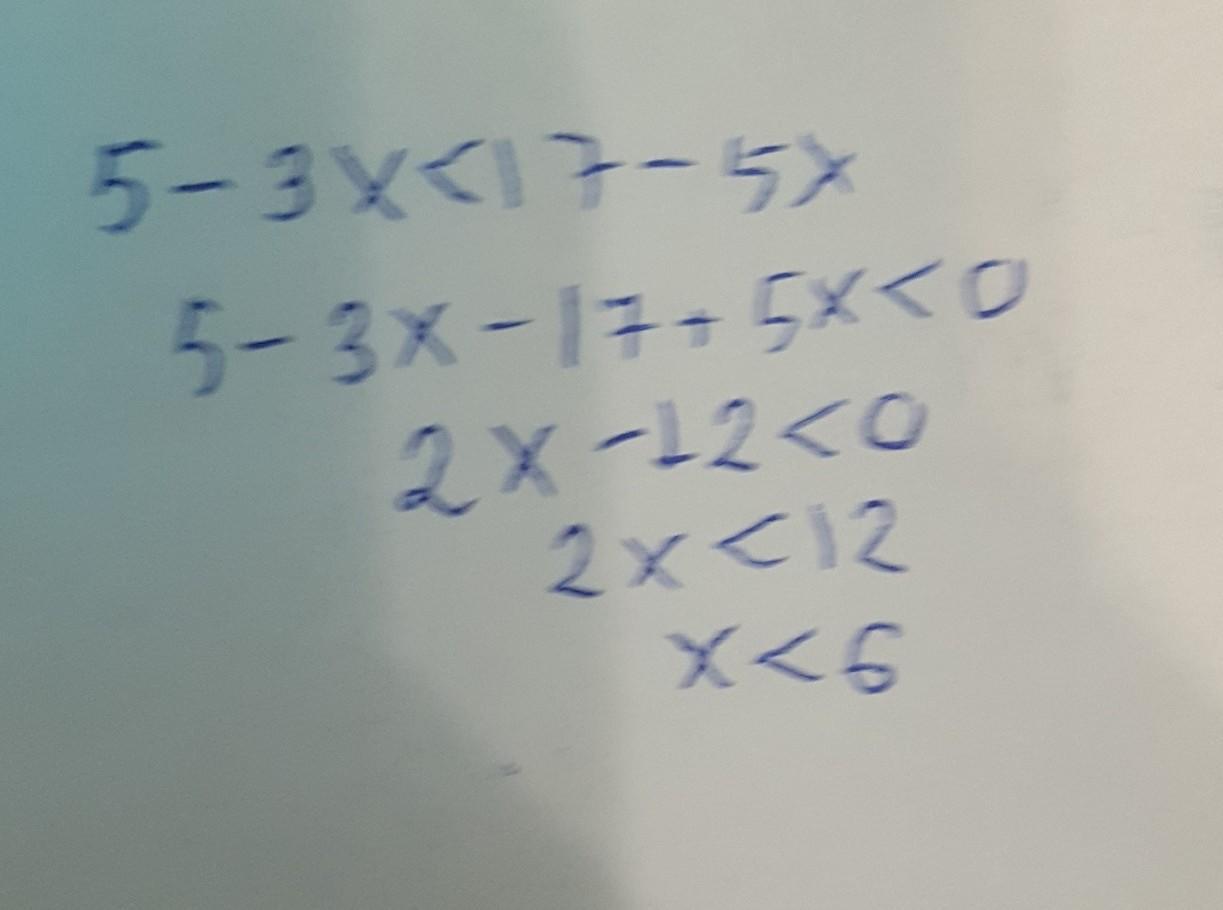 5-3x<17-5x
5-3x-17+5x<0
2x-12<0
2x<12
x<6